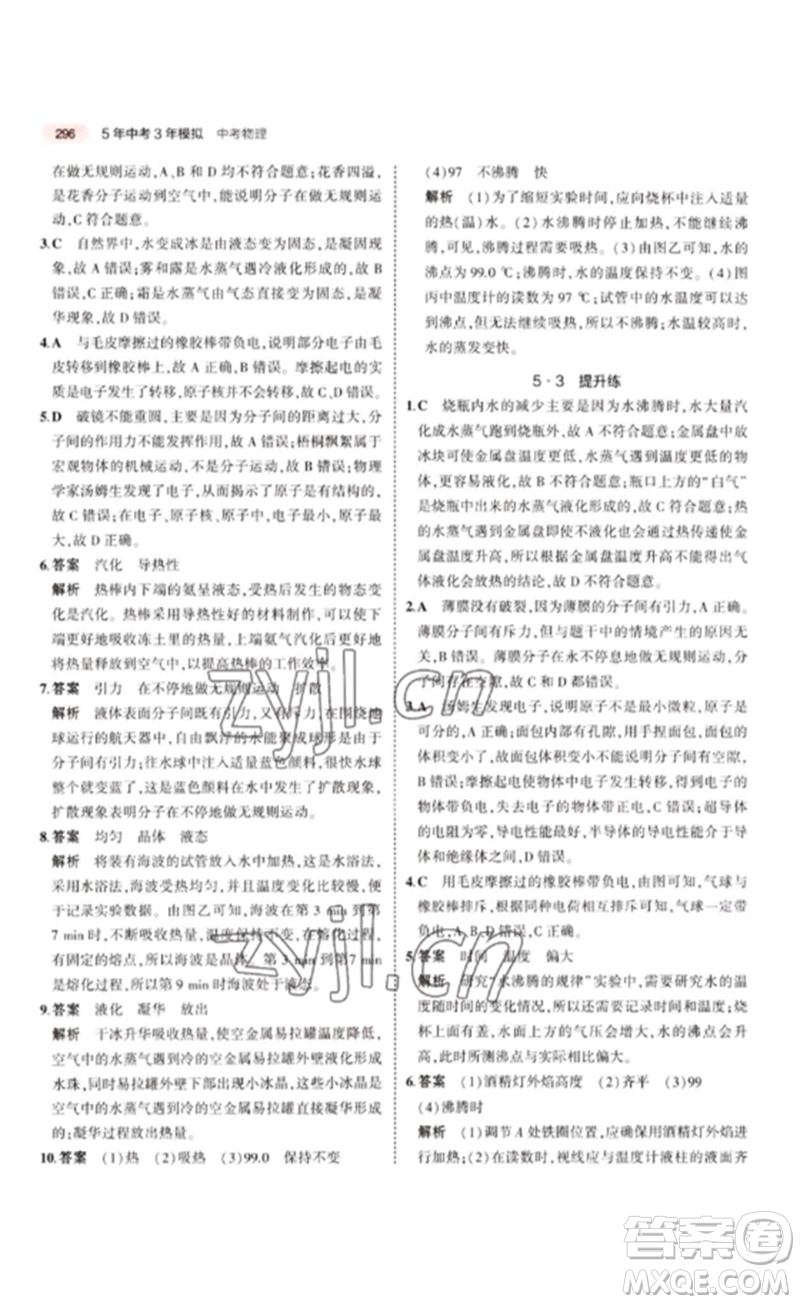 296 5年中考3年模拟 中考物理
在做无规则运动,A、B和D均不符合题意;花香四溢,
是花香分子运动到空气中,能说明分子在做无规则运
动,C符合题意。
3.C 自然界中,水变成冰是由液态变为固态,是凝固现
象,故A错误;雾和露是水蒸气遇冷液化形成的,故B
错误,C正确;霜是水蒸气由气态直接变为固态,是凝
华现象,故D错误。
4.A 与毛皮摩擦过的橡胶棒带负电,说明部分电子由毛
皮转移到橡胶棒上,故A正确,B错误。摩擦起电的实
质是电子发生了转移,原子核未转移,故C、D错误。
5.D 破镜不能重圆,主要是因为分子间的距离过大,分
子间的作用力不能发生作用,A错误;梧桐飘絮属于
宏观物体的机械运动,不是分子运动,B错误;物理
学家汤姆生发现了电子,从而揭示了原子是可分的,
故C错误;在原子、原子核、电子中,原子尺度最大,
最大,故D正确。
6.答案 汽化 导热性
解析 热棒内下端的氨呈液态,受热后发生的物态变
化是汽化。热棒采用导热性好的材料制作,可以使下
端更好地吸收冻土里的热量,上端氨气汽化后更易放
热,以提高热棒的工作效率。
7.答案 引力 在不停地做无规则运动 扩散
解析 液体表面分子间既有引力,又有斥力,在围绕地
球运行的航天器中,自由飘浮的水能聚成水球,是因
为分子间有引力;往水球中注入适量蓝颜料,很快水球
整个就变蓝了,这是蓝色颜料在水中发生了扩散现象,
扩散现象表明分子在不停地做无规则运动。
8.答案 均匀 晶体 液态
解析 将装有海波的试管放入水中加热,这是水浴法,
采用水浴法,海波受热均匀,并且温度变化比较慢,便
于记录实验数据。由图乙可知,海波在第3 min到第
7 min时,吸收热量,温度保持不变,在熔化过程中,
有固定的熔点,所以海波是晶体。第3 min到第7 min
是熔化过程,所以第9 min时海波处于液态。
9.答案 液化 凝华 放出
解析 干冰升华吸收热量,使空金属易拉罐温度降低,
空气中的水蒸气遇到冷的空金属易拉罐外壁液化形成
水珠,同时易拉罐外壁还出现了小冰晶,这些小冰晶是
空气中的水蒸气遇到冷的空金属易拉罐直接凝华形
成的;凝华过程放出热量。
10.答案 (1)热 (2)吸热 (3)99.0 保持不变
(4)97 不沸腾 快
解析 (1)为了缩短实验时间,应向烧杯中注入适量
的热(温)水。(2)水沸腾时停止加热,水不能继续沸
腾,可见,沸腾过程需要吸热。(3)由图乙可知,水的
沸点为99.0 ℃;沸腾时,水的温度保持不变。(4)图
丙中温度计的读数为97 ℃;试管中的水温度可以达
到沸点,但无法继续吸热,所以不沸腾;水的温度越高,
水的蒸发变快。
5·3 提升练
1.C 烧瓶内水的减少主要是因为水沸腾时,水大量汽
化成水蒸气跑到烧瓶外,故A不符合题意;金属盘中放
冰块可使金属盘的温度更低,水蒸气遇到温度更低的物
体,更容易液化,故B不符合题意;瓶口上方的“白气”
是烧瓶中出来的水蒸气液化形成的,故C符合题意;热
的水蒸气遇到金属盘即使不液化也会放热,从而使金
属盘温度升高,所以只由金属盘温度升高,不能得出
液化会放热的结论,故D不符合题意。
2.A 薄膜没有破裂,因为薄膜的分子间有引力,A正确。
薄膜分子间有斥力,但不是由于题中的情境产生的原因,
故B错误。薄膜分子在水中不停息地做无规则运动,但
与本现象无关,故C和D都错误。
3.A 汤姆生发现电子,说明原子不是最小微粒,原子是可
分的,A正确;面包内部有孔隙,用手捏面包,面包的
体积变小了,是因为面包间的空隙变小,不能说明分子间有空隙,
所以面包体积变小不能说明分子间有空隙,
故B错误;摩擦起电使物体中电子发生转移,得到电子的
物体带负电,失去电子的物体带正电,故C错误;超导体
的电阻为零,导体的导电性能好,半导体的导电性能介于导体
和绝缘体之间,D错误。
4.C 用毛皮摩擦过的橡胶棒带负电,由图可知,气球与
橡胶棒排斥,根据同种电荷相互排斥可知,气球一定带
负电,A、B、D错误,C正确。
5.答案 时间 温度 偏大
解析 研究“水沸腾的规律”实验中,需要研究水的温
度随时间的变化情况,所以还需要记录时间和温度;烧
杯上面有盖,水面上方的气压会增大,水的沸点会升高,
故此时所测沸点与实际相比偏大。
6.答案 (1)酒精灯外焰高度 (2)齐平 (3)99
(4)沸腾时
解析 (1)调节A处铁圈位置,应确保用酒精灯外焰
加热。(2)在读数时,视线应与温度计液柱的液面齐
zyjl.cn
zyjl.cn
答案圈
MXQE.COM